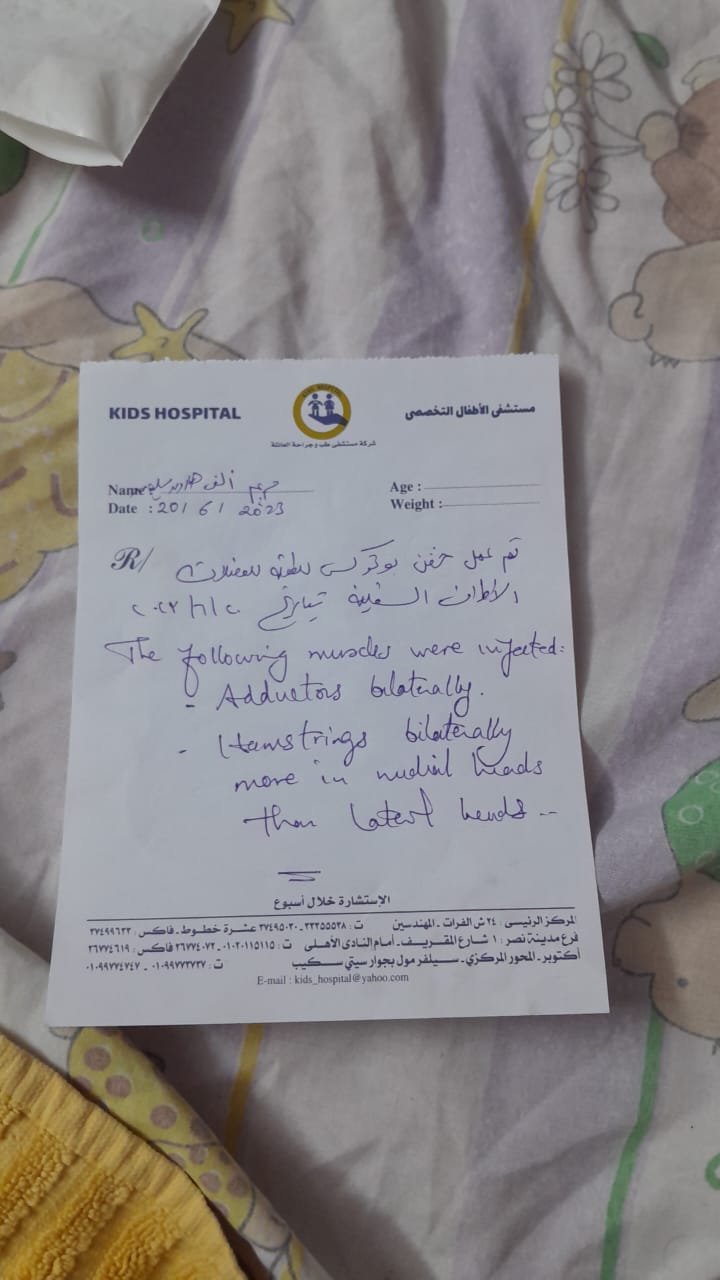 KIDS HOSPITAL
KIDS HOSPITAL
مستشفى الأطفال التخصصى
شركة مستشفى طب وجراحة العائلة
Name مريم
Age :
Date : 20 / 6 / 2023
Weight :
R/
تم عمل حقن بوتوكس للطفلة لعضلات
الأطراف السفلية بتاريخ ٢٠٢٣/٦/٢٠
The following muscles were injected:
- Adductors bilaterally.
- Hamstrings bilaterally
more in medial heads
than lateral heads..
الإستشارة خلال أسبوع
المركز الرئيسى : ٢٤ ش الفرات - المهندسين ت : ٣٧٤٩٥٠٣٠ - ٣٣٣٥٥٥٣٨ عشرة خطوط - فاكس : ٣٧٤٩٩٦٣٣
فرع مدينة نصر : ١ شارع المقريف - أمام النادى الأهلى ت : ٠١٠٢٠١١٥١١٥ - ٢٦٧٧٤٠٧٢ فاكس : ٢٦٧٧٤٦١٩
أكتوبر - المحور المركزي - سيلفر مول بجوار سيتي سكيب ت : ٠١٠٩٩٧٧٣٧٣٧ - ٠١٠٩٩٧٧٤٧٤٧
E-mail : kids_hospital@yahoo.com